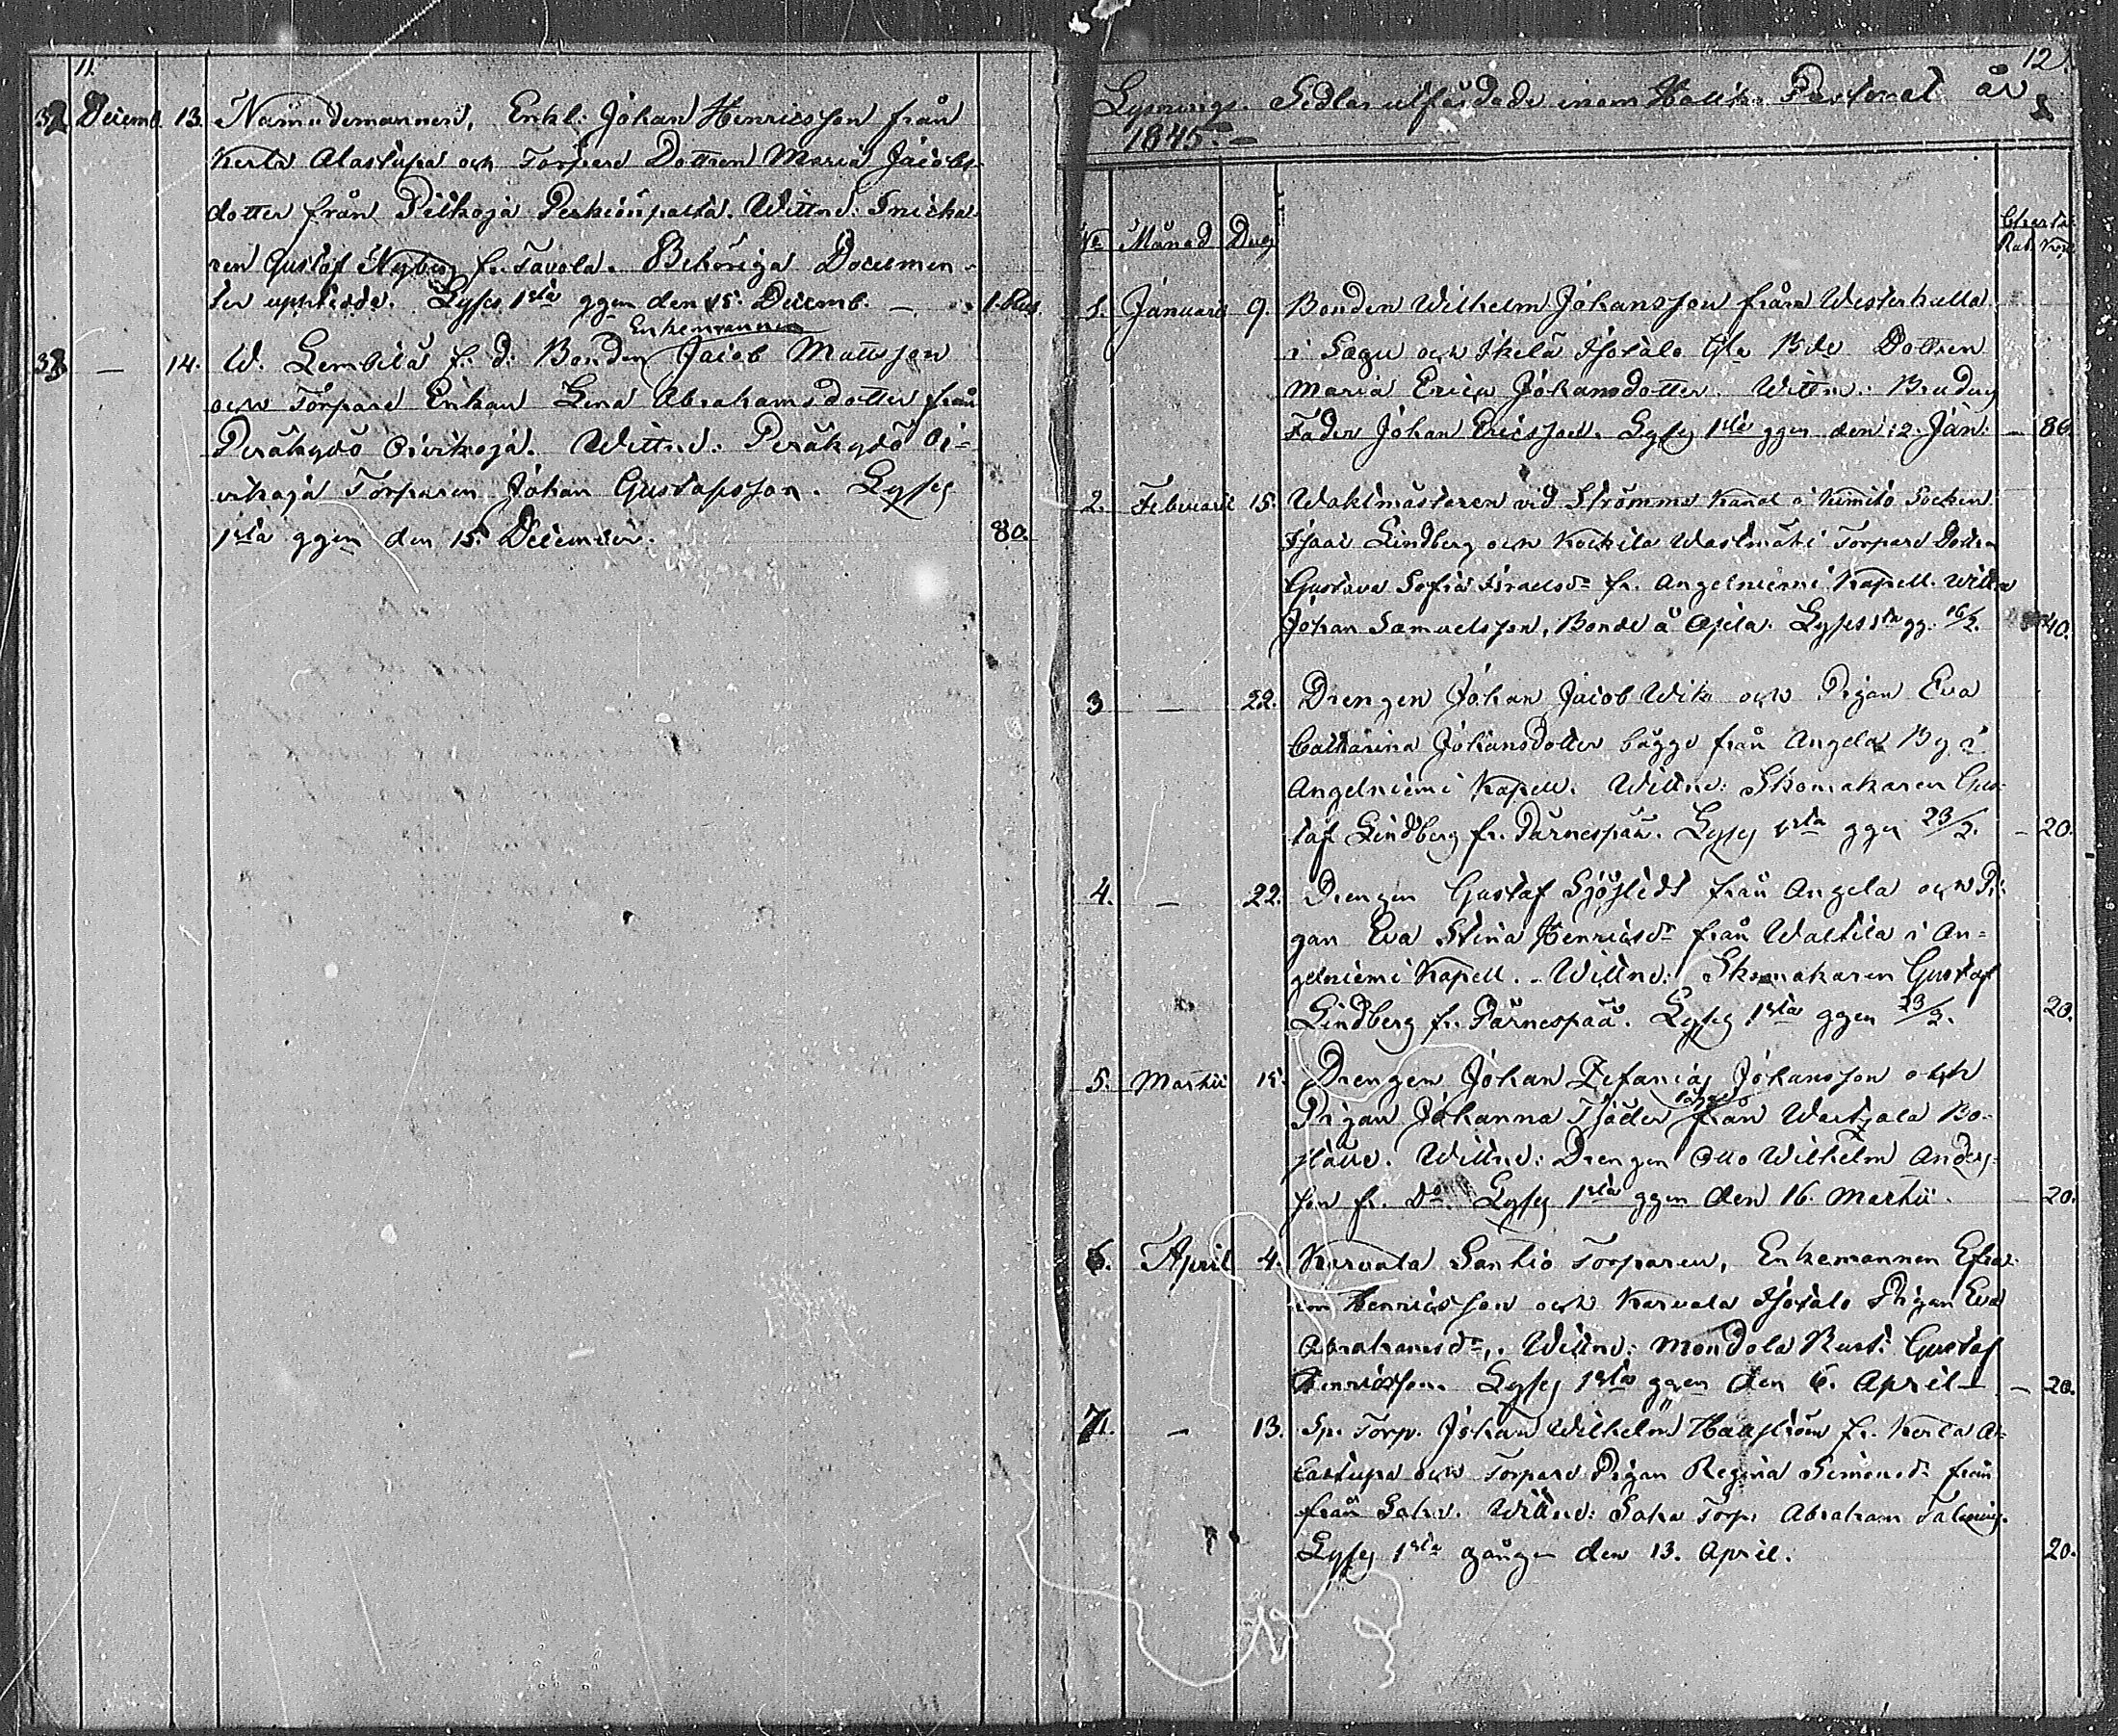 11.
32 Decemb. 13. Nämndemannen, Enkl. Johan Henricsson från
Kerla Alastupa och Torpare Dottren Maria Jacobs-
dotter från Pilkoja Wittne: Snicka-
ren Gustaf Nyberg fr. Tavola. Behöriga Documen-
ter uptedde. Lyses 1sta ggen den 15. Decemb. — 1. Rub.
33 — 14. W. Lembilä f. d. Bonden Enkemannen Jacob Mattsson
och Torpare Enkan Lena Abrahamsdotter från
Peräkylö Oivikoja. Wittne: Peräkylö Oi-
vikoja Torparen Johan Gustafsson. Lyses
1sta ggen den 15. December. 80.
12
Lysnings-Sedlar utfärdade inom Pastorat år
1845.—
No Månad Dag Rub. Kop.
1. Januarii 9. Bonden Wilhelm Johansson från Westerkulla
i Sagu och Ikelä Isotalo Bde Dottren
Maria Erica Johansdotter. Wittn: Brudens
Fader Johan Ericsson. Lyses 1sta ggen den 12. Jan: — 80.
2. Februarii 15. Waktmästaren vid Strömma Kanal i Kimito Socken
Isaac Lindberg och Kockila Wastmäki Torpare Dottren
Gustava Sofia Israelsdr fr. Angelniemi Kapell. Wittne
Johan Samuelsson, Bonde å Apila. Lyses 1sta gg. 16/2. 40.
3 — 22. Drengen Johan Jacob Wik och Pigan Eva
Catharina Johansdotter bägge från Angela By i
Angelniemi Kapell. Wittne: Skomakaren Gus-
taf Lindberg fr. Pärnespää. Lyses 1sta ggen 23/2. — 20.
4. — 22. Drengen Gustaf Sjöstedt från Angela och Pi-
gan Eva Stina Henricsdr från Waltila i An-
gelniemi Kapell. Wittne: Skomakaren Gustaf
Lindberg fr. Pärnespää. Lyses 1sta ggen 23/2. 20.
5. Martii 15. Drengen Johan Zefanias Johansson och
Pigan Johanna Tjäder bägge från Wartsala Bo-
ställe. Wittne: Drengen Otto Wilhelm Anders-
son fr. Do Lyses 1sta ggen den 16. Martii. — 20.
6. April 4. Karvala Santio Torparen, Enkemannen Efra-
im Henricsson och Karvala Isotalo Pigan Eva
Abrahamsdr. Wittne: Mondola Rust. Gustaf
Henricsson. Lyses 1sta ggen den 6. April — 20.
7. — 13. Sp. Torp. Johan Wilhelm Hallström fr. Kerla A-
lastupa och Torpare Pigan Regina Simonsd. från
från Sahv. Wittne: Saha Torp. Abraham
Lyses 1sta gången den 13. April. 20.